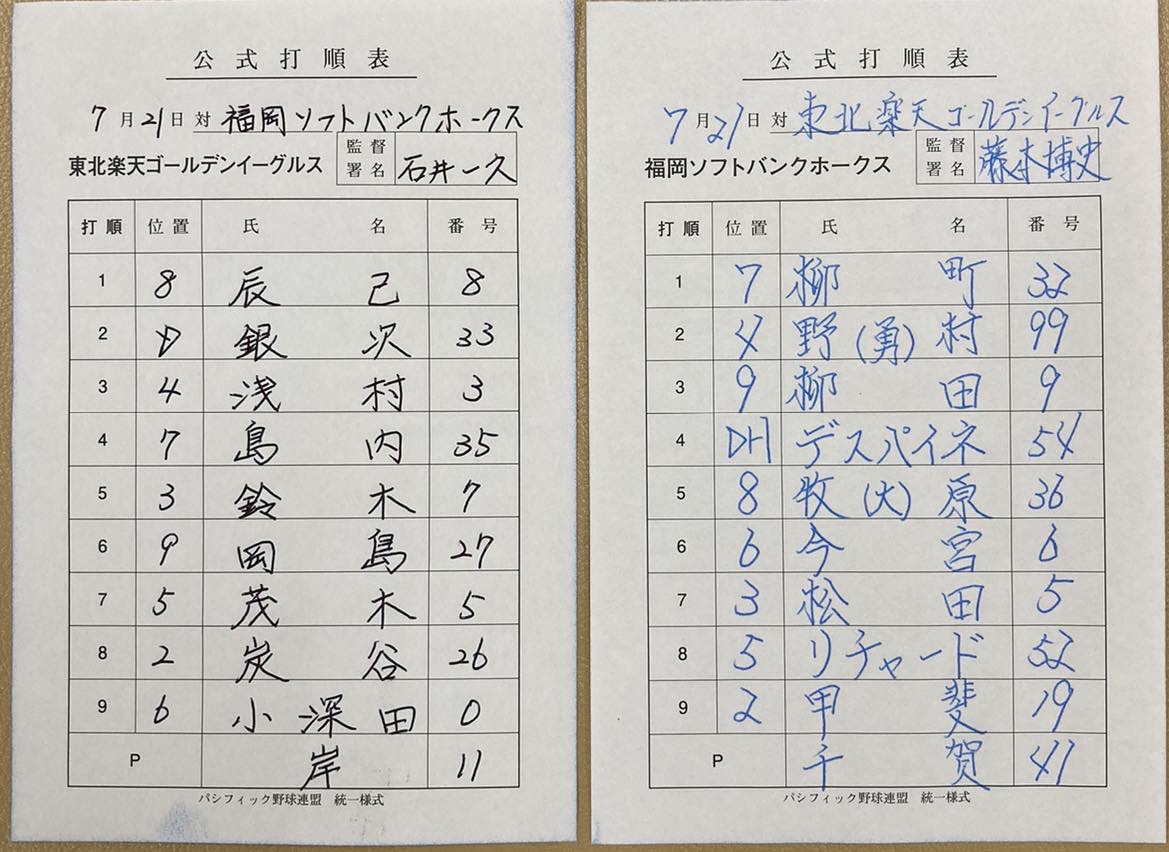 公式打順表
7月21日 対 福岡ソフトバンクホークス
東北楽天ゴールデンイーグルス 監督署名 石井一久
打順 位置 氏名 番号
1 8 辰己 8
2 D 銀次 33
3 4 浅村 3
4 7 島内 35
5 3 鈴木 7
6 9 岡島 27
7 5 茂木 5
8 2 炭谷 26
9 6 小深田 0
P 岸 11
パシフィック野球連盟 統一様式
公式打順表
7月21日 対 東北楽天ゴールデンイーグルス
福岡ソフトバンクホークス 監督署名 藤本博史
打順 位置 氏名 番号
1 7 柳町 32
2 4 野(勇)村 99
3 9 柳田 9
4 DH デスパイネ 54
5 8 牧(大)原 36
6 6 今宮 6
7 3 松田 5
8 5 リチャード 52
9 2 甲斐 19
P 千賀 41
パシフィック野球連盟 統一様式